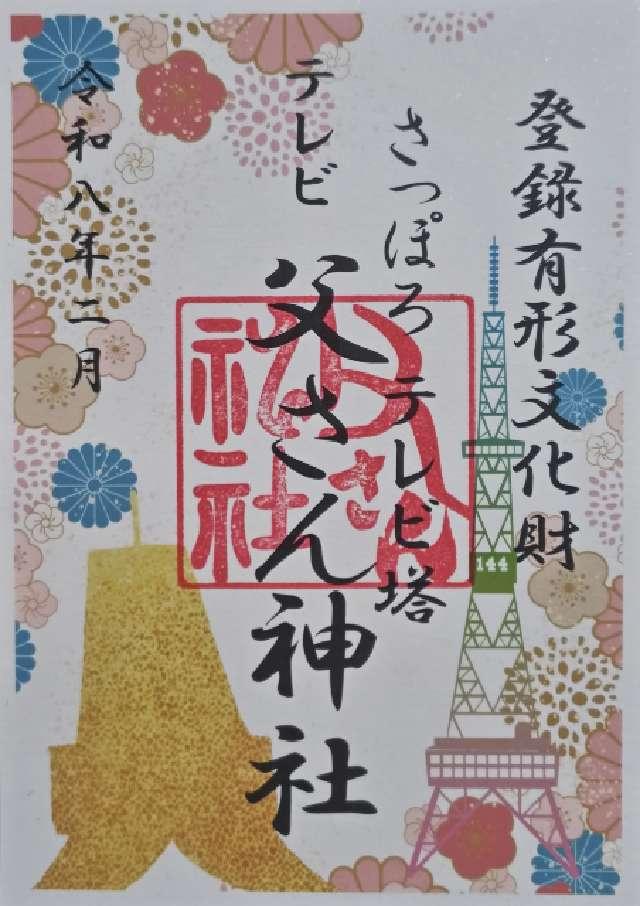 登録有形文化財
さっぽろテレビ塔
テレビ
父さん神社
令和八年二月
144
父さん
神社